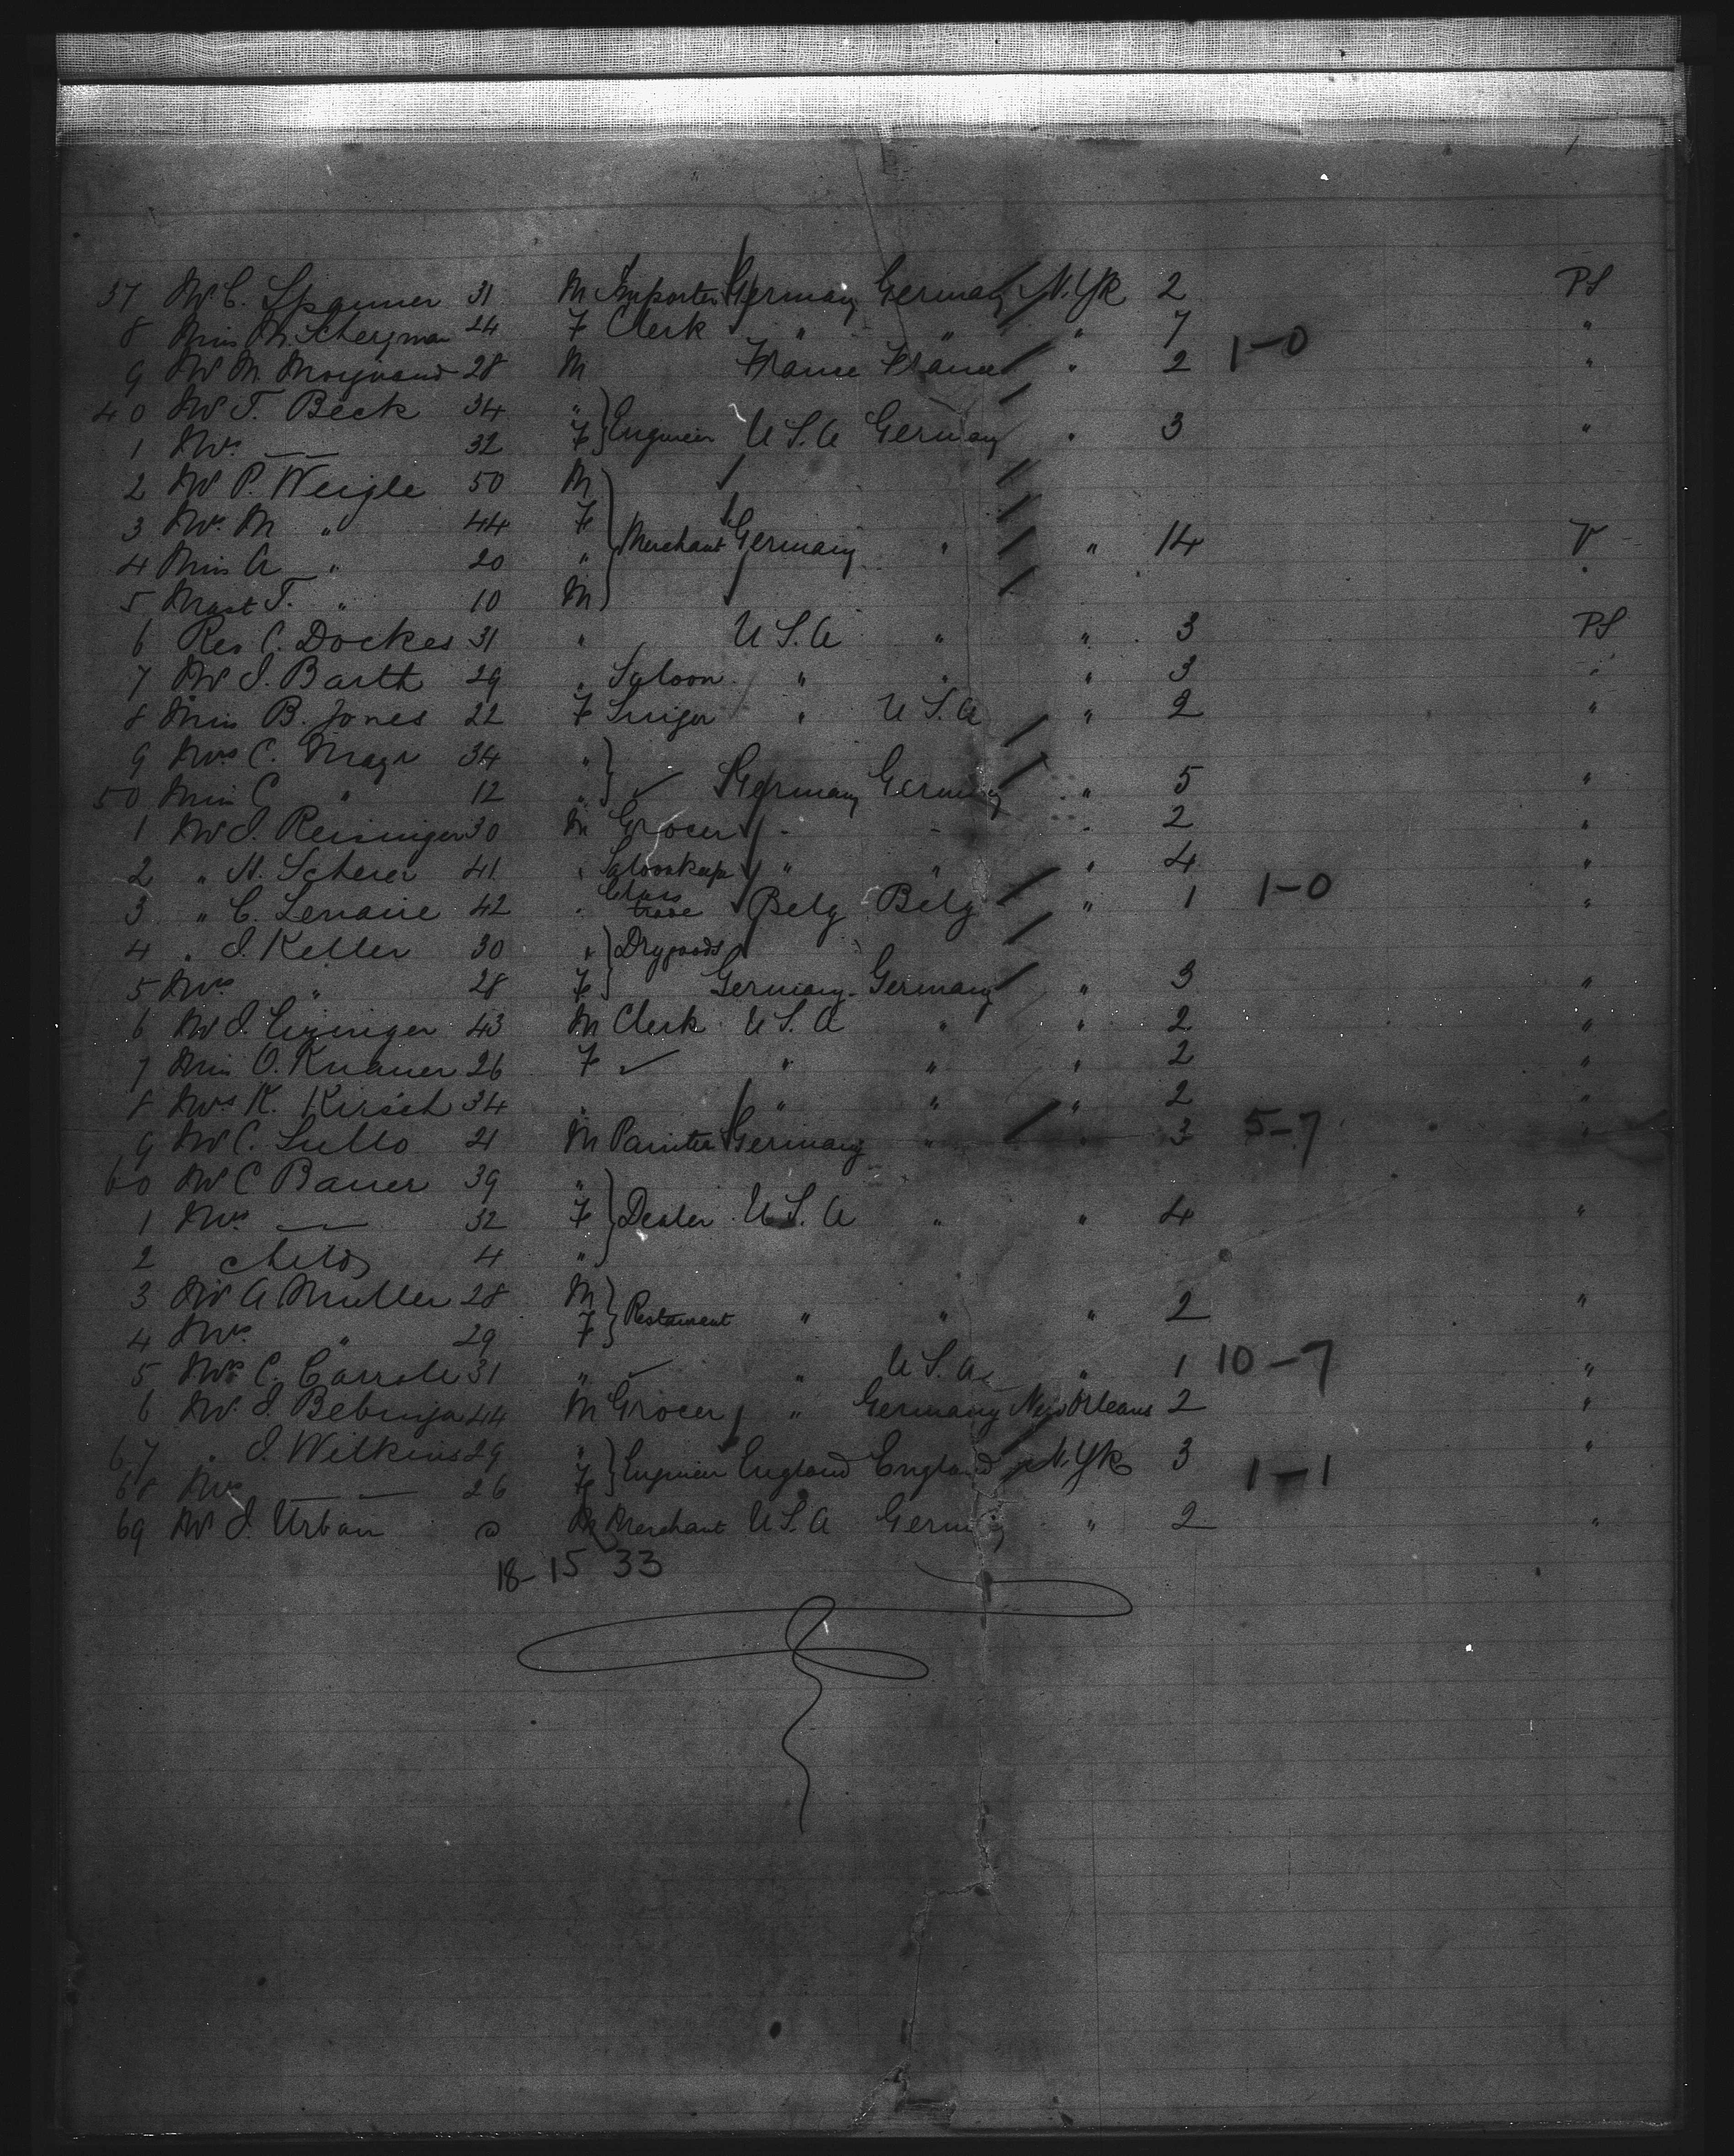 37 Mr C. Spanner 31 M Importer Germany Germany N.Yk 2 PS
8 Miss M. 24 F Clerk " " " 7 "
9 Mr M. 28 M France France " 2 1-0 "
40 Mr T. Beck 34 "
1 Mrs — — 32 F Engineer U.S.A Germany " 3 "
2 Mr P. Weigle 50 M
3 Mrs M " 44 F
Merchant Germany " " 14 V
4 Miss A " 20 "
5 Mast T. " 10 M
6 Rev C. Dockes 31 " U.S.A " " 3 PS
7 Mr J. Barth 29 " Saloon " " " 3 "
8 Miss B. Jones 22 F Singer " U.S.A " 2 "
9 Mrs C. Mayr 34 "
50 Miss C " 12 " ✓ Germany Germany " 5 "
1 Mr J. Reisinger 30 M Grocer " " " 2 "
2 " H. Scherer 41 " Saloonkeep " " " 4 "
3 " C. Lenaire 42 " Glass trade Belg Belg " 1 1-0 "
4 " J. Keller 30 " Drygoods
5 Mrs " 28 F Germany Germany " 3 "
6 Mr J. 43 M Clerk U.S.A " " 2 "
7 Miss O. Knauer 26 F ✓ " " " 2 "
8 Mrs K. Kirsch 34 " " " " 2 "
9 Mr C. 21 M Painter Germany " " 3 5-7 "
60 Mr C Bauer 39 "
1 Mrs — 32 F Dealer U.S.A " " 4 "
2 child 4 "
3 Mr A Muller 28 M
Restaurant " " " 2 "
4 Mrs " 29 F
5 Mrs C. Carrole 31 " ✓ " U.S.A " 1 10-7 "
6 Mr J. 44 M Grocer " Germany New Orleans 2 "
67 " J. Wilkins 29 "
68 Mrs — — 26 F Engineer England England N.Yk 3 1-1 "
69 Mr J. Urban M Merchant U.S.A Germany " 2 "
18-15 33